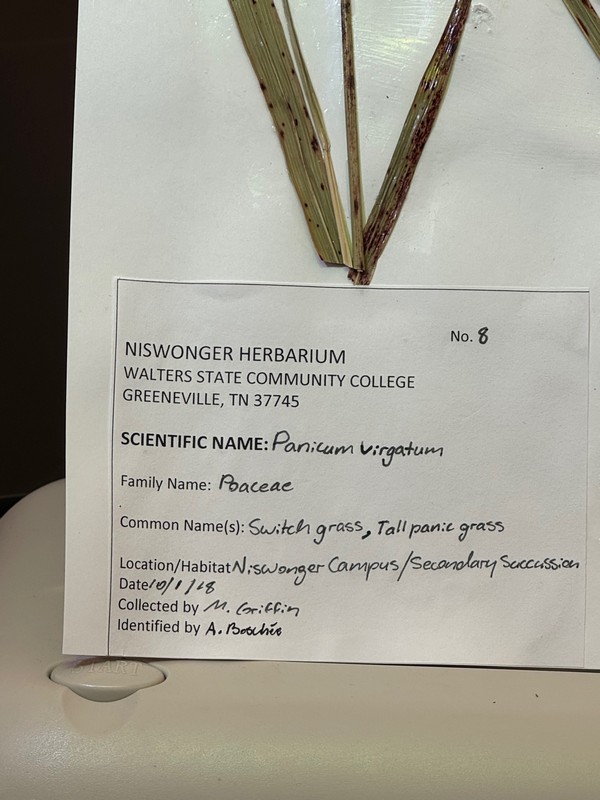 No. 8
NISWONGER HERBARIUM
WALTERS STATE COMMUNITY COLLEGE
GREENEVILLE, TN 37745
SCIENTIFIC NAME: Panicum virgatum
Family Name: Poaceae
Common Name(s): Switch grass, Tall panic grass
Location/Habitat Niswonger Campus/Secondary Succission
Date 10/1/18
Collected by M. Griffin
Identified by A.
START